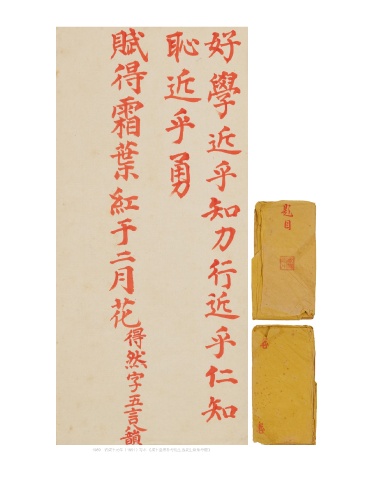 好學近乎知力行近乎仁知
恥近乎勇
賦得霜葉紅于二月花得然字五言八韻
題目